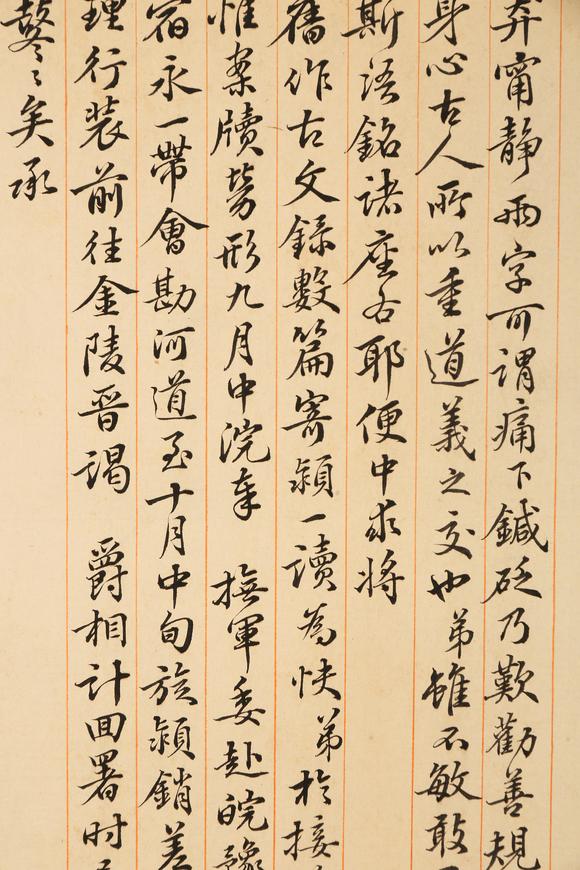 弃甯靜兩字可謂痛下鍼砭乃歎勸善規
身心古人所以重道義之交也弟雖不敏敢
斯語銘諸座右耶便中求將
舊作古文錄數篇寄潁一讀為快弟於接
惟案牘勞形九月中浣奉 撫軍委赴皖豫
宿永一帶會勘河道至十月中旬旋潁銷差
理行裝前往金陵晉謁 爵相計回署時
鼕鼕矣承